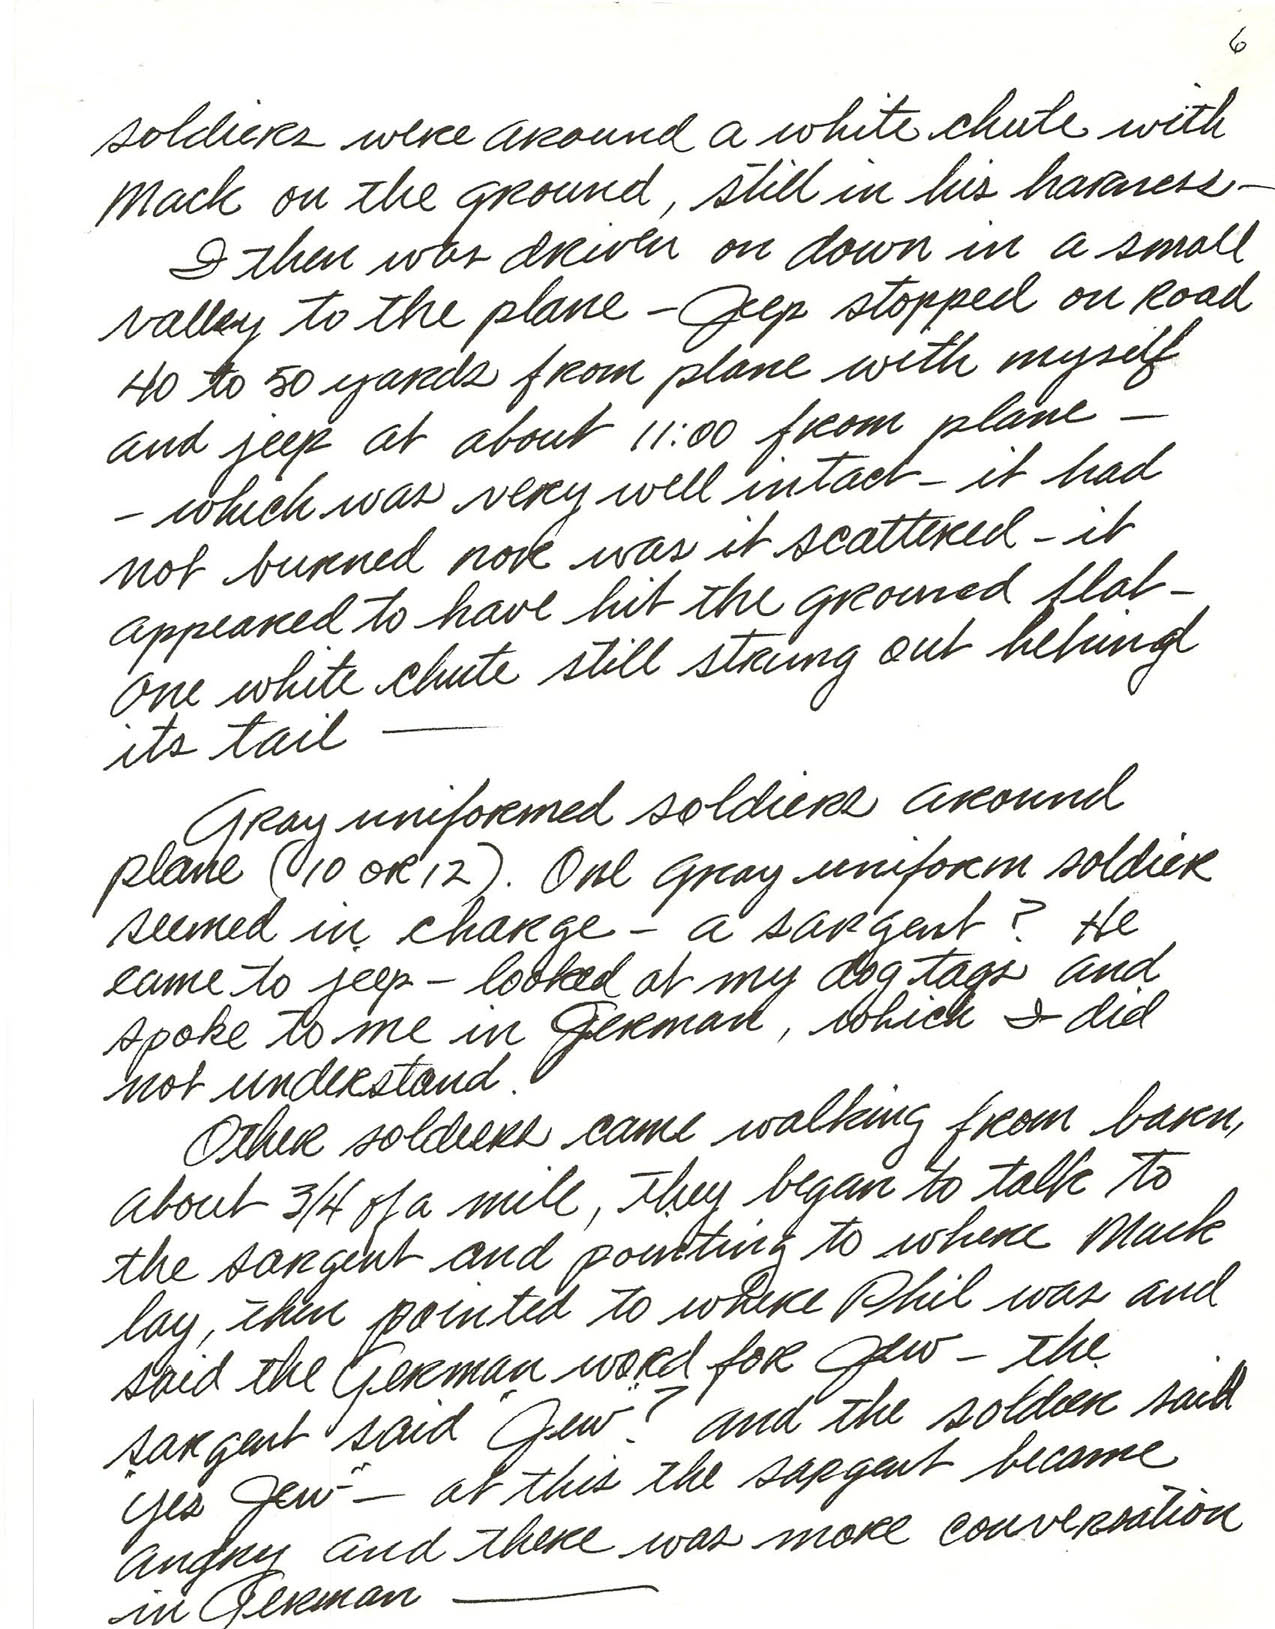 6
soldiers were around a white chute with
Mack on the ground, still in his harness -
I then was driven on down in a small
valley to the plane - Jeep stopped on road
40 to 50 yards from plane with myself
and jeep at about 11:00 from plane -
- which was very well intact - it had
not burned nor was it scattered - it
appeared to have hit the ground flat -
One white chute still strung out behind
its tail —
Gray uniformed soldiers around
plane (10 or 12). One gray uniform soldier
seemed in charge - a sargent? He
came to jeep - looked at my dog tags and
spoke to me in German, which I did
not understand.
Other soldiers came walking from barn,
about 3/4 of a mile, they began to talk to
the sargent and pointing to where Mack
lay, then pointed to where Phil was and
said the German word for Jew - the
sargent said "Jew"? and the soldier said
"yes Jew" - at this the sargent became
angry and there was more conversation
in German —